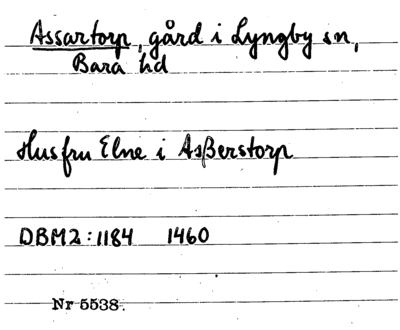 Assartorp, gård i Lyngby sn,
Bara hd
Husfru Elne i Asßerstorp
DBM2:1184 1460
Nr 5538.